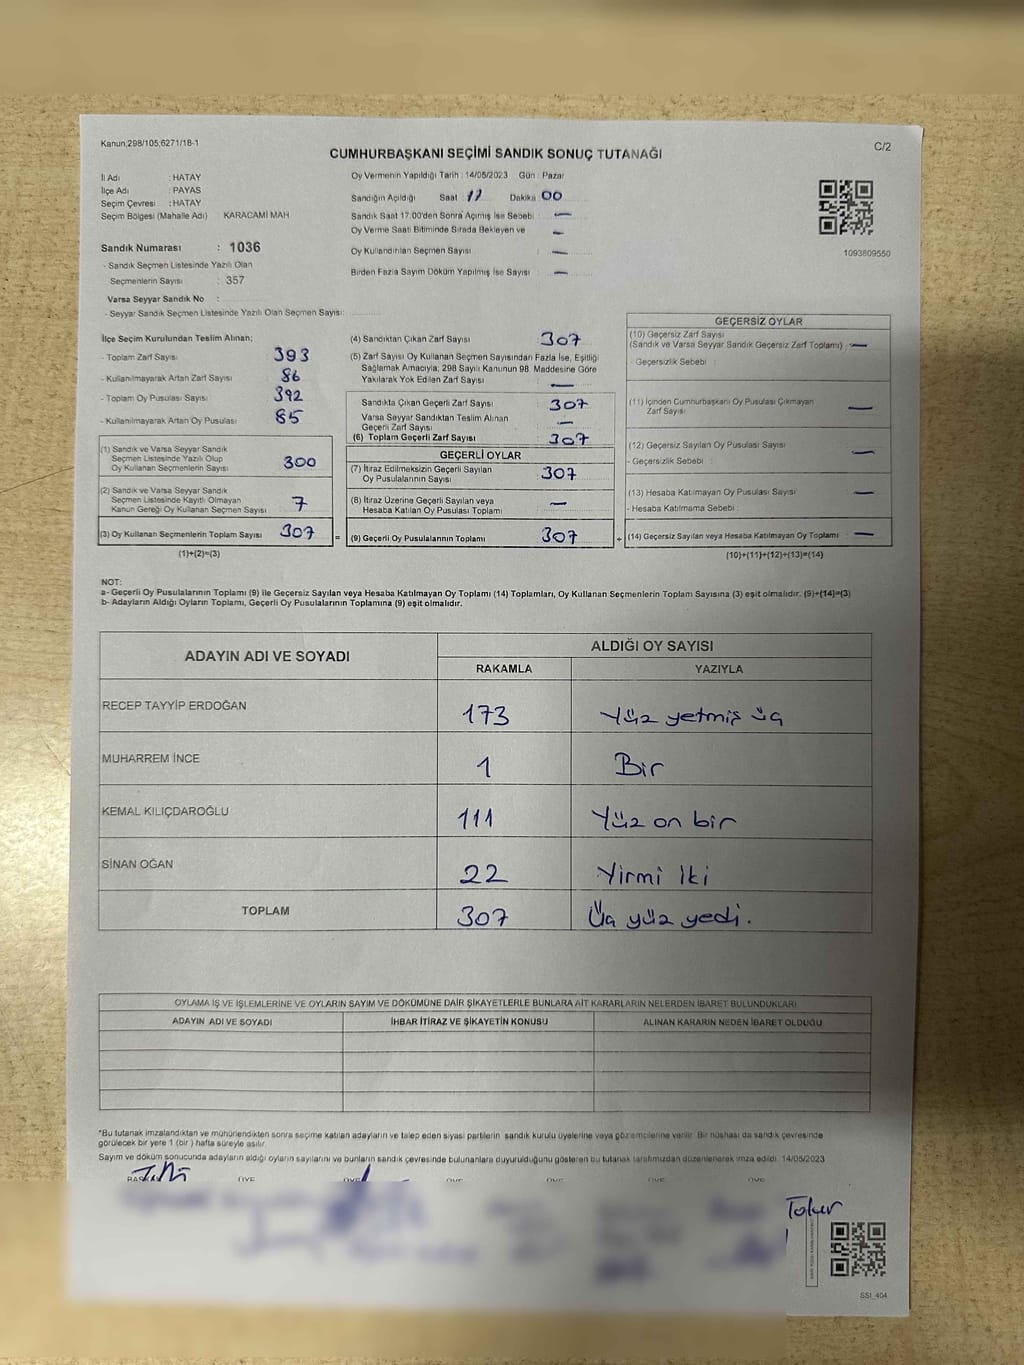 Kanun,298/105,6271/18-1
C/2
CUMHURBAŞKANI SEÇİMİ SANDIK SONUÇ TUTANAĞI
İl Adı : HATAY
İlçe Adı : PAYAS
Seçim Çevresi : HATAY
Seçim Bölgesi (Mahalle Adı) KARACAMİ MAH
Sandık Numarası : 1036
- Sandık Seçmen Listesinde Yazılı Olan
Seçmenlerin Sayısı : 357
Varsa Seyyar Sandık No :
- Seyyar Sandık Seçmen Listesinde Yazılı Olan Seçmen Sayısı:
Oy Vermenin Yapıldığı Tarih : 14/05/2023 Gün : Pazar
Sandığın Açıldığı Saat : 17 Dakika 00
Sandık Saat 17.00'den Sonra Açımış İse Sebebi : —
Oy Verme Saati Bitiminde Sırada Bekleyen ve —
Oy Kullandırılan Seçmen Sayısı : —
Birden Fazla Sayım Döküm Yapılmış İse Sayısı : —
1093809550
İlçe Seçim Kurulundan Teslim Alınan;
- Toplam Zarf Sayısı : 393
- Kullanılmayarak Artan Zarf Sayısı : 86
- Toplam Oy Pusulası Sayısı : 392
- Kullanılmayarak Artan Oy Pusulası : 85
(1) Sandık ve Varsa Seyyar Sandık
Seçmen Listesinde Yazılı Olup
Oy Kullanan Seçmenlerin Sayısı : 300
(2) Sandık ve Varsa Seyyar Sandık
Seçmen Listesinde Kayıtlı Olmayan
Kanun Gereği Oy Kullanan Seçmen Sayısı : 7
(3) Oy Kullanan Seçmenlerin Toplam Sayısı : 307
(1)+(2)=(3)
(4) Sandıktan Çıkan Zarf Sayısı : 307
(5) Zarf Sayısı Oy Kullanan Seçmen Sayısından Fazla İse, Eşitliği
Sağlamak Amacıyla; 298 Sayılı Kanunun 98. Maddesine Göre
Yakılarak Yok Edilen Zarf Sayısı : —
Sandıkta Çıkan Geçerli Zarf Sayısı : 307
Varsa Seyyar Sandıktan Teslim Alınan
Geçerli Zarf Sayısı : —
(6) Toplam Geçerli Zarf Sayısı : 307
GEÇERLİ OYLAR
(7) İtiraz Edilmeksizin Geçerli Sayılan
Oy Pusulalarının Sayısı : 307
(8) İtiraz Üzerine Geçerli Sayılan veya
Hesaba Katılan Oy Pusulası Toplamı : —
= (9) Geçerli Oy Pusulalarının Toplamı : 307 +
GEÇERSİZ OYLAR
(10) Geçersiz Zarf Sayısı
(Sandık ve Varsa Seyyar Sandık Geçersiz Zarf Toplamı) : —
- Geçersizlik Sebebi :
(11) İçinden Cumhurbaşkanı Oy Pusulası Çıkmayan
Zarf Sayısı : —
(12) Geçersiz Sayılan Oy Pusulası Sayısı : —
- Geçersizlik Sebebi :
(13) Hesaba Katılmayan Oy Pusulası Sayısı : —
- Hesaba Katılmama Sebebi :
(14) Geçersiz Sayılan veya Hesaba Katılmayan Oy Toplamı : —
(10)+(11)+(12)+(13)=(14)
NOT:
a- Geçerli Oy Pusulalarının Toplamı (9) ile Geçersiz Sayılan veya Hesaba Katılmayan Oy Toplamı (14) Toplamları, Oy Kullanan Seçmenlerin Toplam Sayısına (3) eşit olmalıdır. (9)+(14)=(3)
b- Adayların Aldığı Oyların Toplamı, Geçerli Oy Pusulalarının Toplamına (9) eşit olmalıdır.
ADAYIN ADI VE SOYADI ALDIĞI OY SAYISI
RAKAMLA YAZIYLA
RECEP TAYYİP ERDOĞAN 173 Yüz yetmiş üç
MUHARREM İNCE 1 Bir
KEMAL KILIÇDAROĞLU 111 Yüz on bir
SİNAN OĞAN 22 Yirmi iki
TOPLAM 307 Üç yüz yedi.
OYLAMA İŞ VE İŞLEMLERİNE VE OYLARIN SAYIM VE DÖKÜMÜNE DAİR ŞİKAYETLERLE BUNLARA AİT KARARLARIN NELERDEN İBARET BULUNDUKLARI
ADAYIN ADI VE SOYADI İHBAR İTİRAZ VE ŞİKAYETİN KONUSU ALINAN KARARIN NEDEN İBARET OLDUĞU
*Bu tutanak imzalandıktan ve mühürlendikten sonra seçime katılan adayların ve talep eden siyasi partilerin sandık kurulu üyelerine veya gözlemcilerine verilir. Bir nüshası da sandık çevresinde
görülecek bir yere 1 (bir ) hafta süreyle asılır.
Sayım ve döküm sonucunda adayların aldığı oyların sayılarını ve bunların sandık çevresinde bulunanlara duyurulduğunu gösteren bu tutanak tarafımızdan düzenlenerek imza edildi. 14/05/2023
BAŞKAN ÜYE ÜYE ÜYE ÜYE ÜYE ÜYE
SSI_404